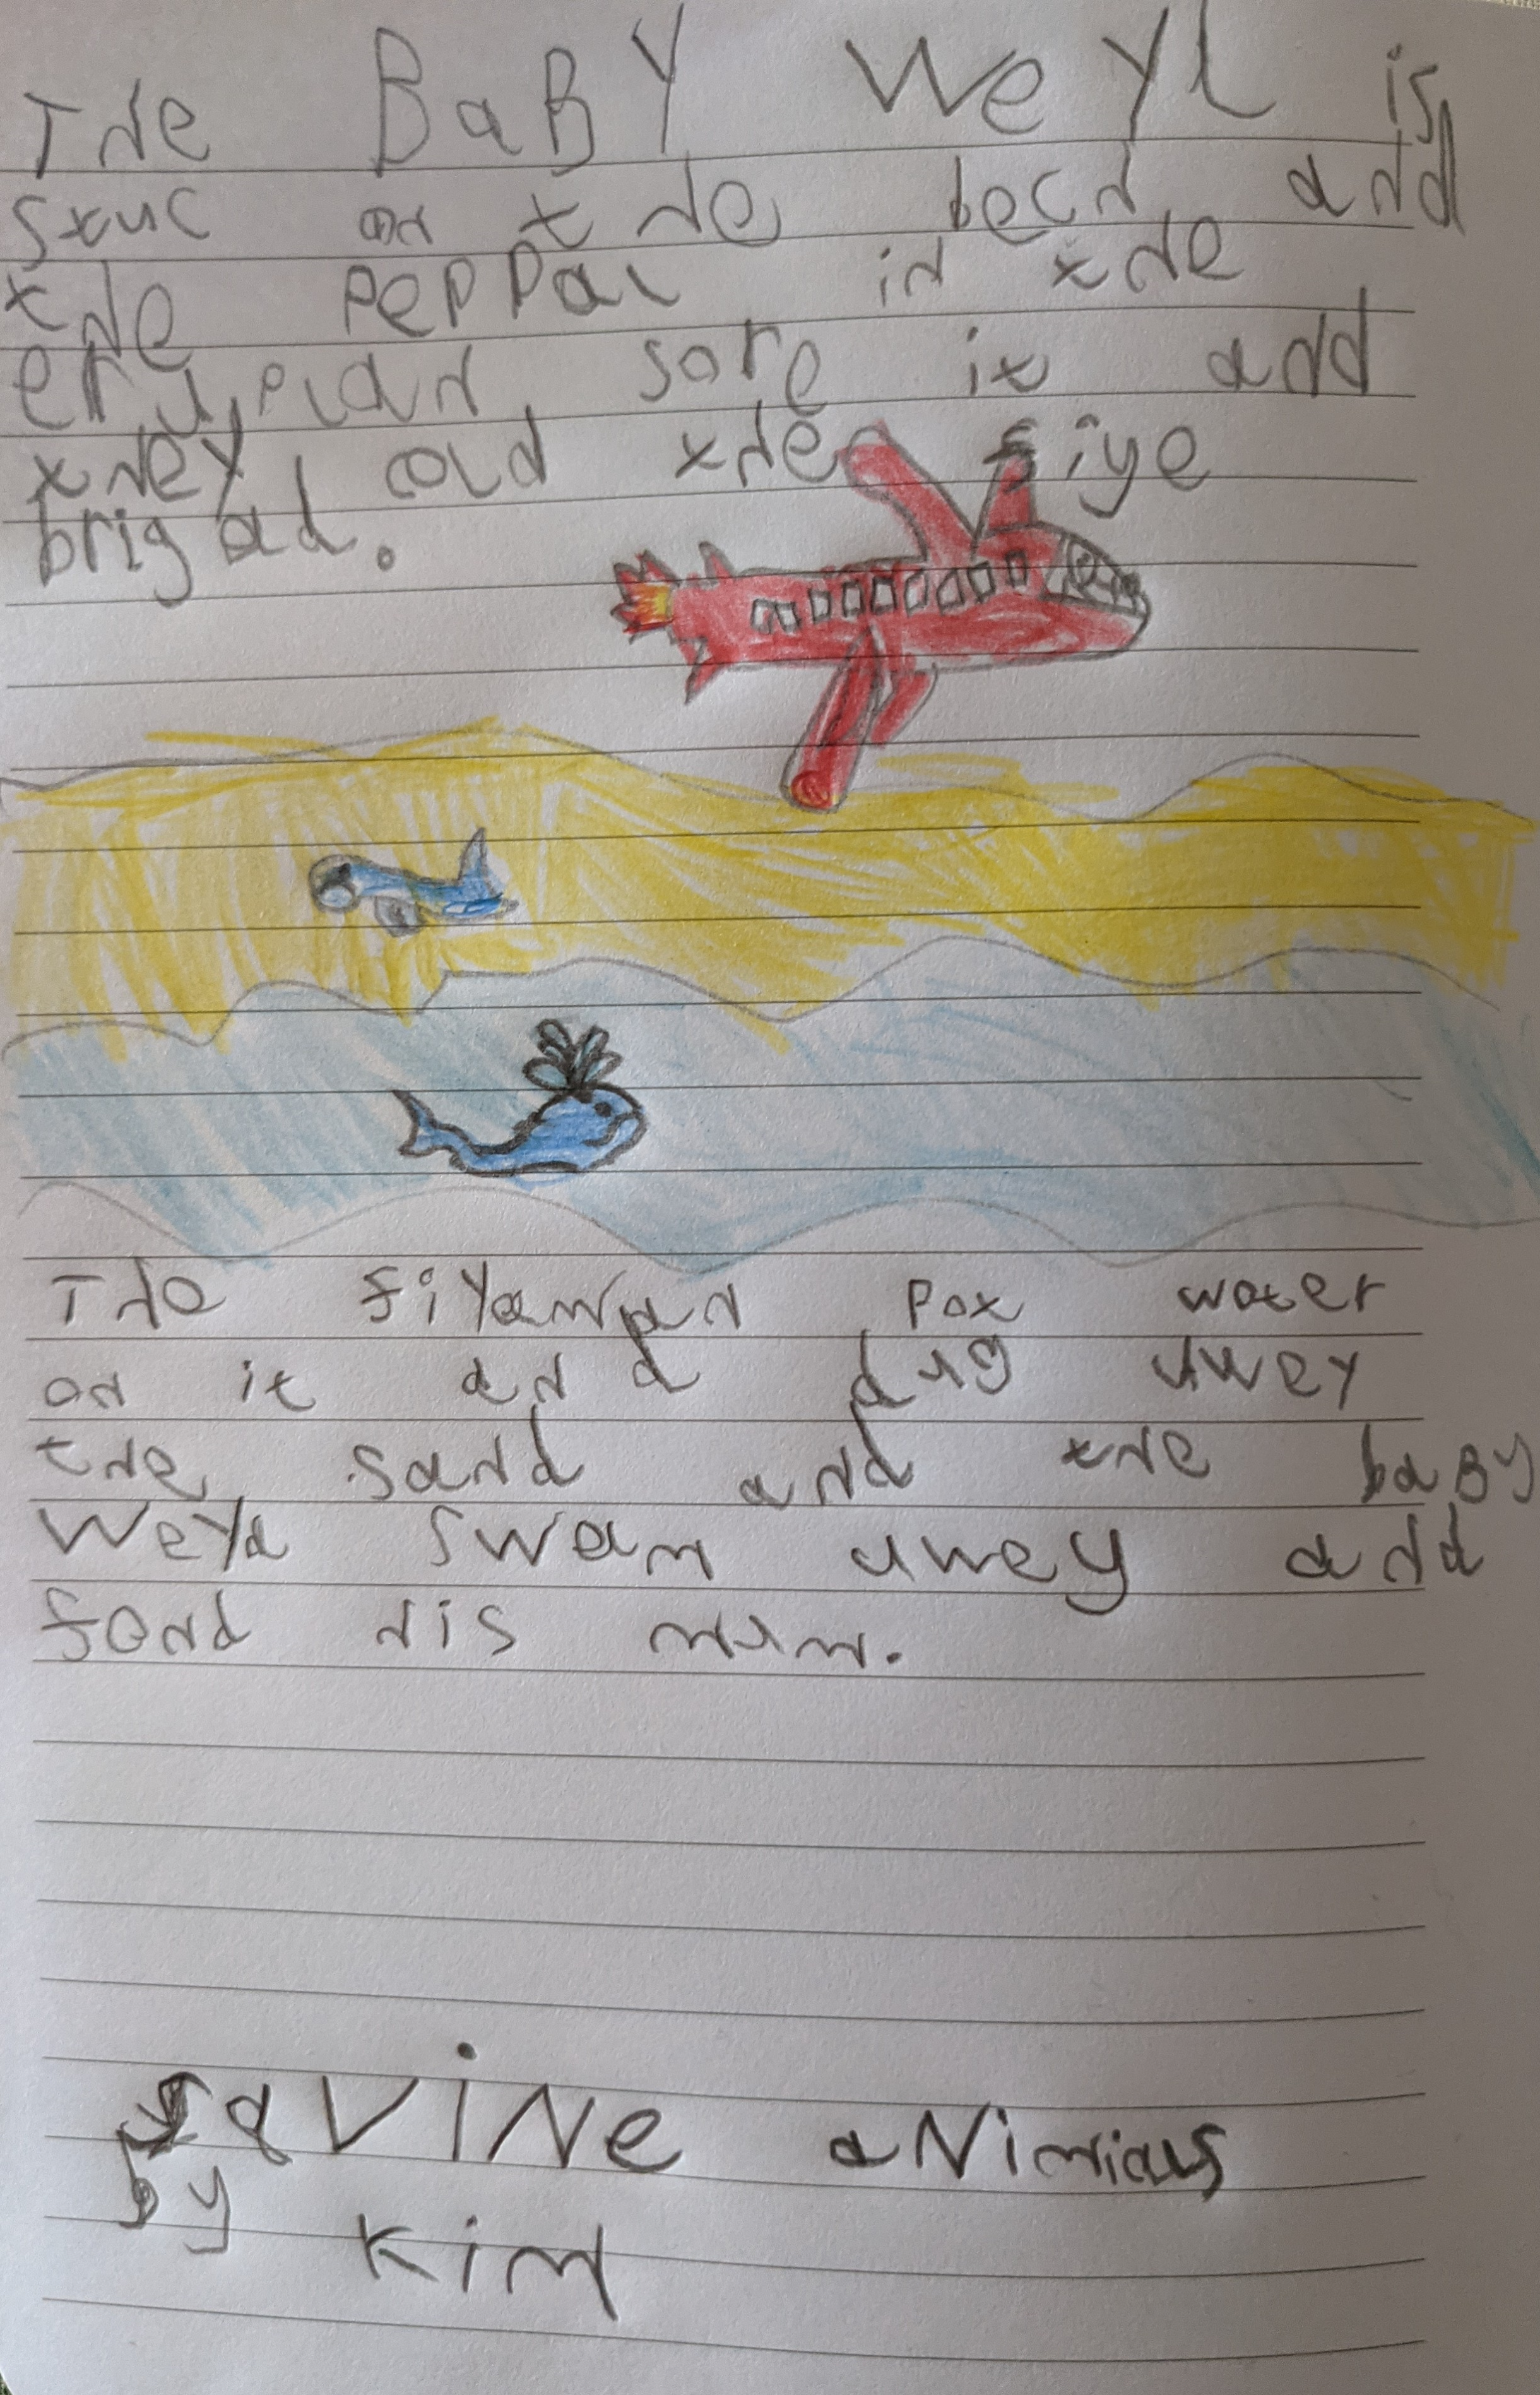 The BaBY WeYl is
stuc on the bech and
the PePPal in the
eruplan sore it and
they cold the fiye
brigad.
The fiYaman pot water
on it and dug uwey
the sand and the baBy
WeYl swam uwey and
fond his mum.
saViNe aNimals
by
Kim